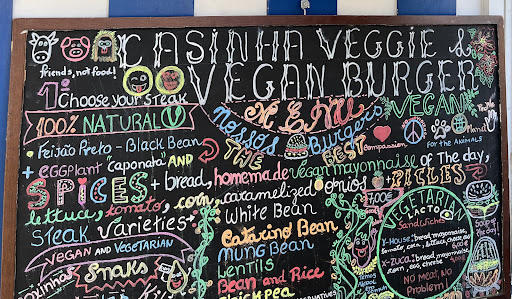 CASINHA VEGGIE &
VEGAN BURGER
friends, not food!
1º Choose your steak
MENU
VEGAN
100% NATURAL
Nossos Burgers
THE BEST
Compassion
FOR THE ANIMALS
• Feijão Preto - Black Bean
+ eggplant "caponata" AND
SPICES + bread, homemade vegan mayonnaise of The day,
lettuce, tomato, corn, caramelized onios + PICLES
Steak varieties
White Bean
Catarino Bean
Mung Bean
Lentils
Bean and Rice
Chick pea
VEGAN AND VEGETARIAN
Snaks
7,00€
VEGETARIAN
LACTO
Sandwiches
X-House: bread, mayonnaise,
X-ZUCA:
corn, egg, cheese
NO meat, No
Problem!